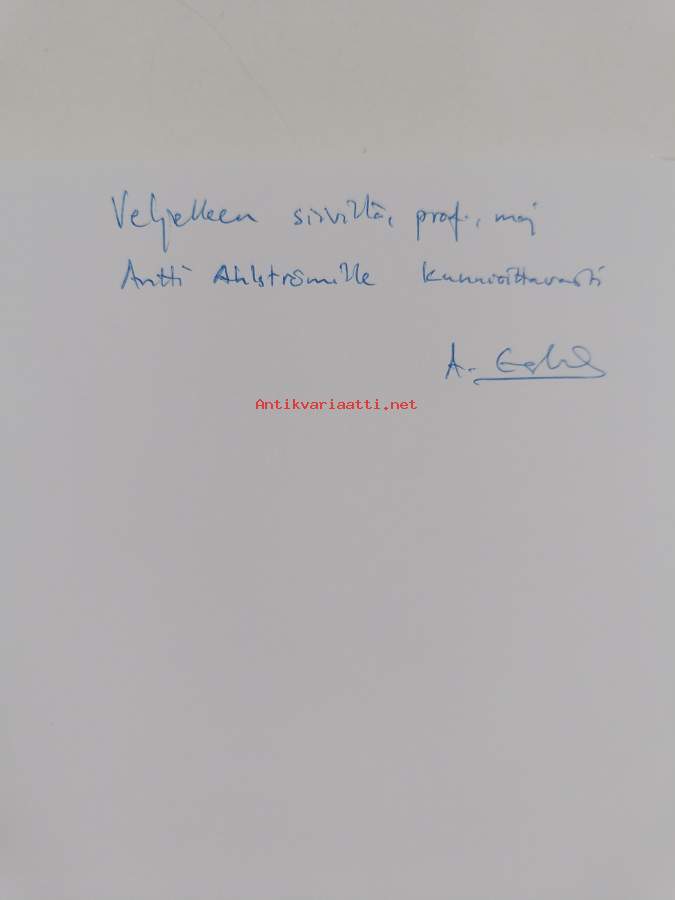 Veljelleen siviltä, prof., maj
Antti Ahlströmille kunnioittavasti
A.
Antikvariaatti.net